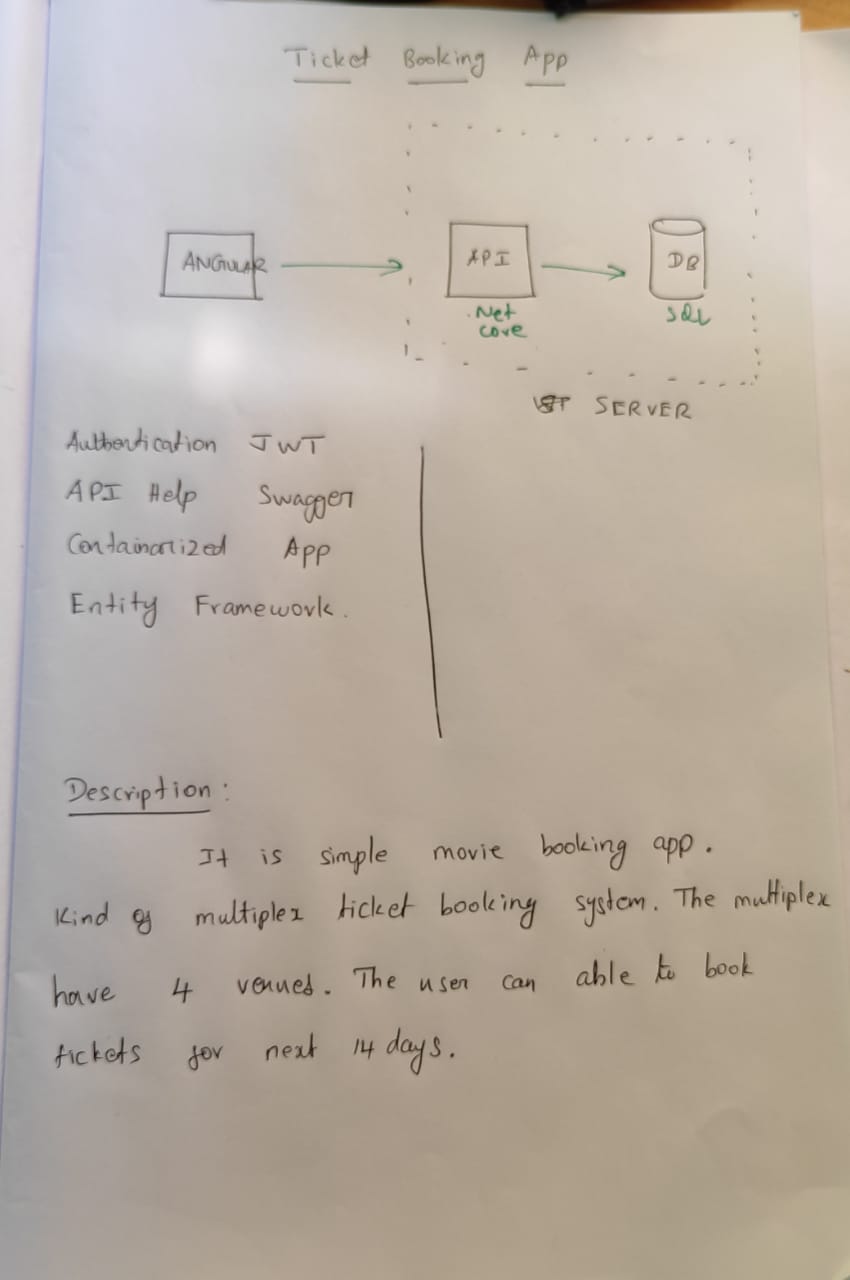 Ticket Booking App
ANGULAR
API
DB
.Net
core
SQL
SERVER
Authentication JWT
API Help Swagger
Containarized App
Entity Framework.
Description :
It is simple movie booking app.
Kind of multiplex ticket booking system. The multiplex
have 4 venues. The user can able to book
tickets for next 14 days.